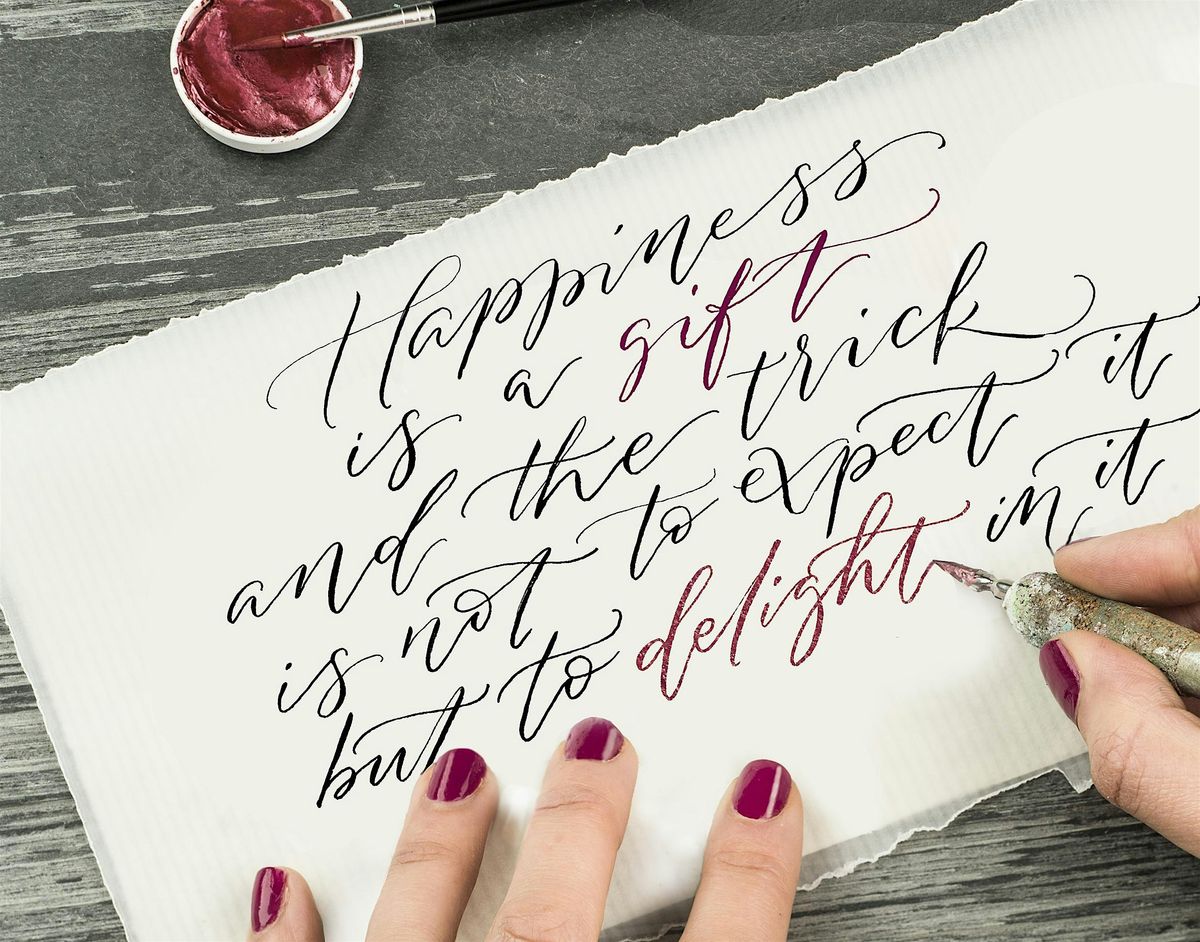 Happiness
is a gift
and the trick
is not to expect it
but to delight in it